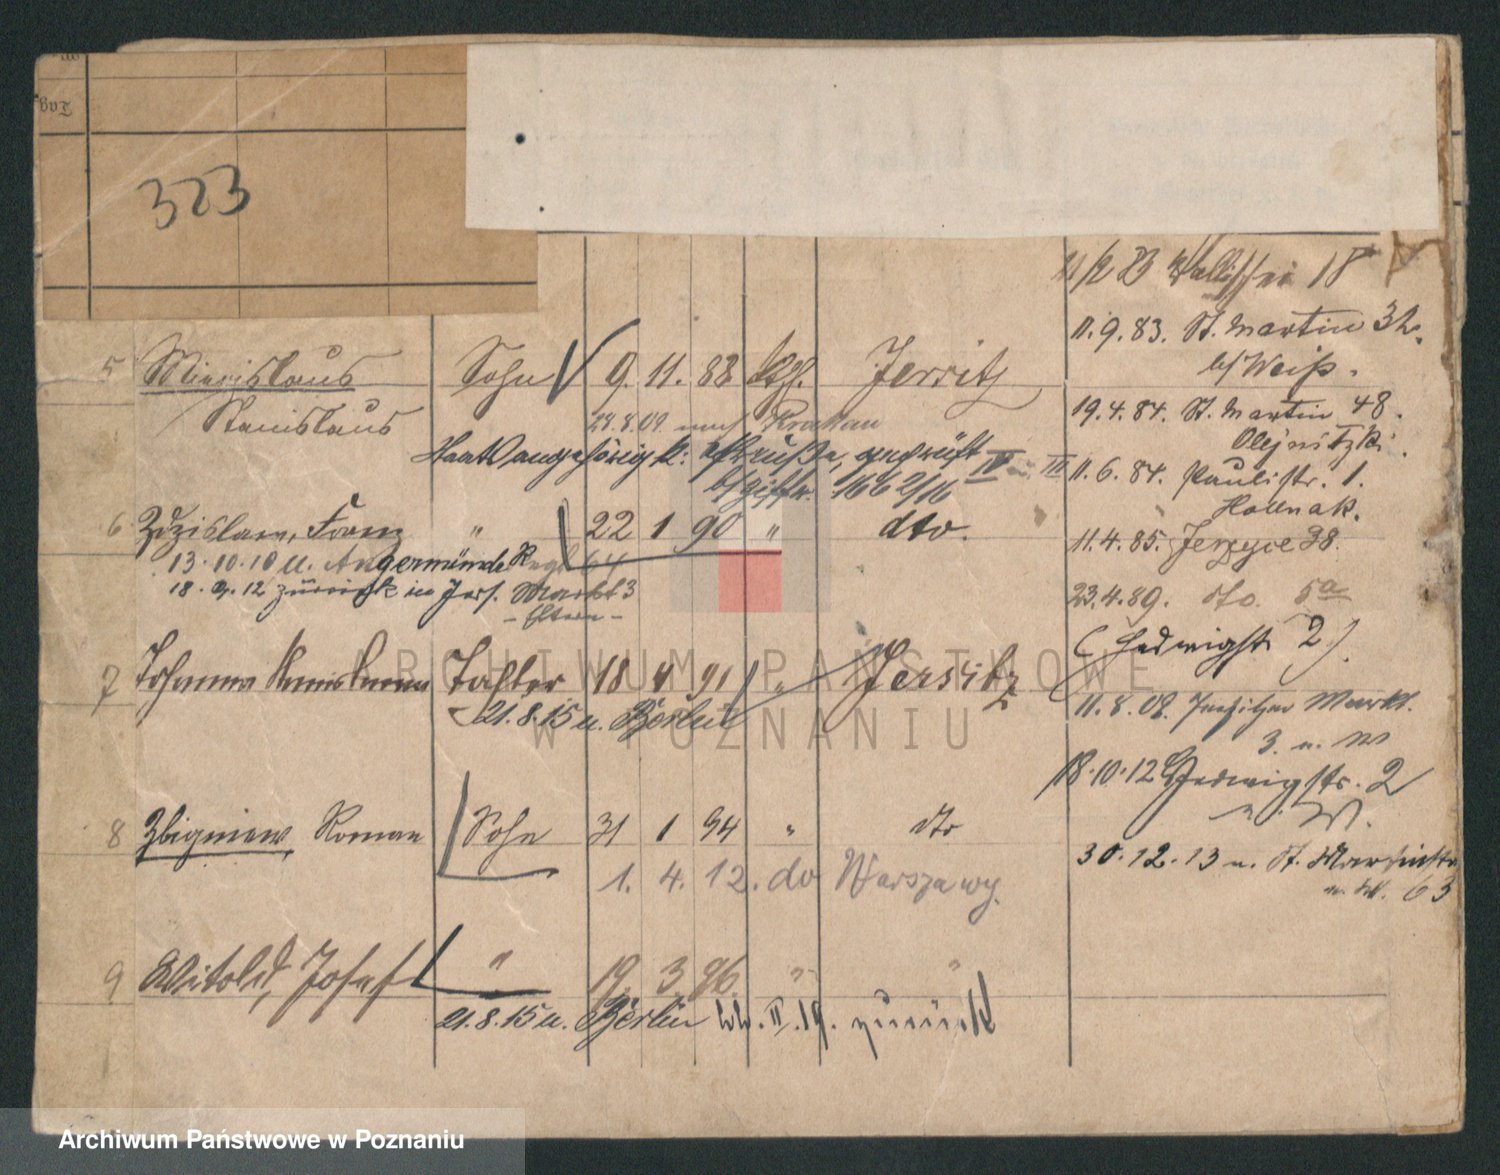 Tag
323
11/2 23 Wallischei 18
11.9.83. St. Martin 32.
b/ Weiß.
5 Miecislaus Sohn 9. 11. 88 kath. Jersitz
19.4.84. St. Martin 48.
Stanislaus 28.8.09. nach Krakau
Olejnitzki.
Staatsangehörigk: geprüft IV III
11.6.84. Paulistr. 1.
1662/16
Hollnak.
6 Zdzislaw, Franz " 22 1 90 " dto.
11.4.85. Jerzyce 38.
13.10.10 u. Angermünde
18.9.12 zurück in Jers. Markt 3
- Eltern -
23.4.89. dto. 5a
(Hedwigstr. 2)
7 Johanna Stanislawa Tochter 18 4 91 " Jersitz
21.8.15 u. Berlin
11.8.08. Jersitzer Markt.
3. u. W
18.10.12 Hedwigstr. 2
u. W.
8 Zbigniew, Roman Sohn 31 1 94 " dto
30.12.13 u. St. Martinstr.
63
1. 4. 12. do Warszawy.
9 Witold, Josef " 19. 3. 96. " "
21.8.15 u. Berlin II.19. zurück
ARCHIWUM PAŃSTWOWE
W POZNANIU
Archiwum Państwowe w Poznaniu